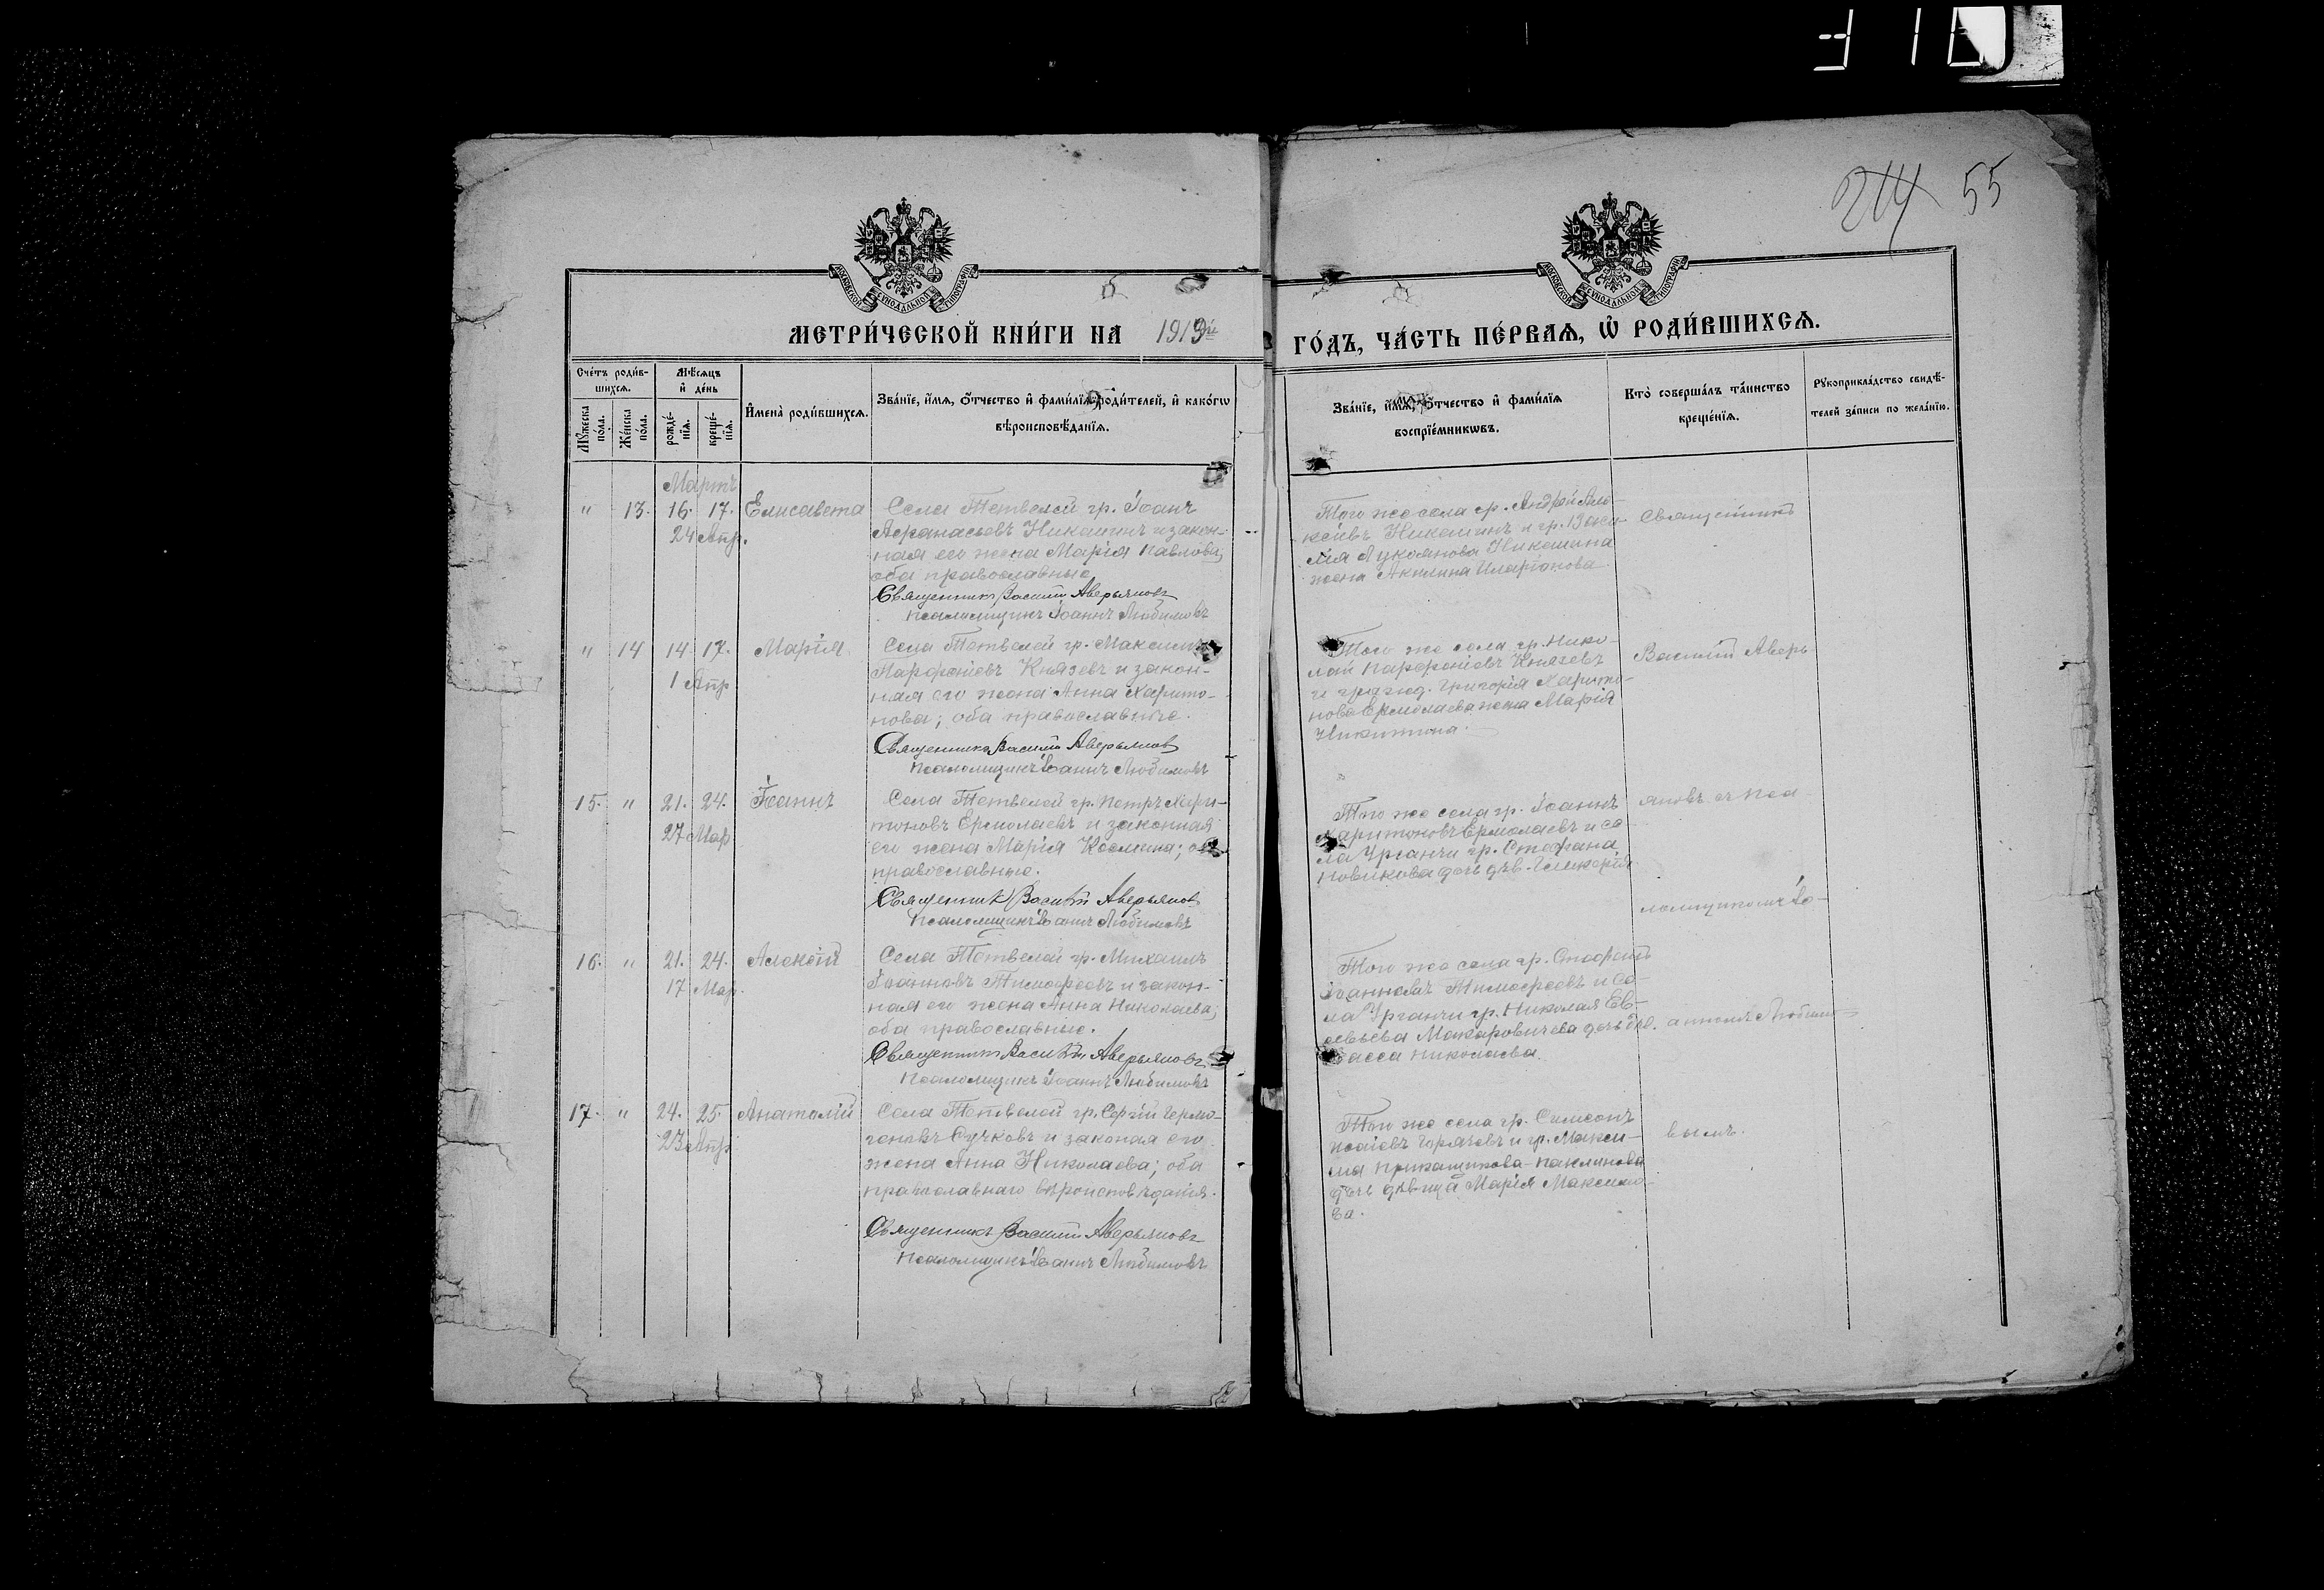 214 55
МОСКОВСКОЙ СѴНОДАЛЬНОЙ ТИПОГРАФІИ
МОСКОВСКОЙ СѴНОДАЛЬНОЙ ТИПОГРАФІИ
МЕТРИ́ЧЕСКОЙ КНИ́ГИ НА 1919й
ГО́ДЪ, ЧА́СТЬ ПЕ́РВАѦ, Ѡ҆ РОДИ́ВШИХСѦ.
Сче́тъ роди́в-
шихсѧ.
Мѣ́сѧцъ
и҆ де́нь
Мꙋ́жеска
по́ла.
Же́нска
по́ла.
рожде́-
нїѧ.
креще́-
нїѧ.
И҆мена̀ роди́вшихсѧ.
Зва́нїе, и҆́мѧ, ѻ҆́тчество и҆ фами́лїѧ роди́телей, и҆ како́гѡ
вѣроисповѣ́данїѧ.
Зва́нїе, и҆́мѧ, ѻ҆́тчество и҆ фами́лїѧ
воспрїе́мникѡвъ.
Кто̀ соверша́лъ та́инство
креще́нїѧ.
Рꙋкоприкла́дство свидѣ́-
телей за́писи по жела́нїю.
Мартъ
" 13. 16. 17. Елисавета
24 Апр.
Села Тетвелей гр. Іоанъ
Афанасьевъ Никашинъ и закон-
ная его жена Марія Павлова;
оба православные
Священникъ Василій Аверьяновъ
Псаломщикъ Іоаннъ Любимовъ
Того же села гр. Андрей Але-
ксѣевъ Никашинъ и гр. Васи-
лія Лукоянова Никашина
жена Акилина
Священникъ
" 14 14 17. Марія
1 Апр
Села Тетвелей гр. Максимъ
Парфеніевъ Князевъ и закон-
ная его жена Анна Харито-
нова; оба православные.
Священникъ Василій Аверьяновъ
Псаломщикъ Іоаннъ Любимовъ
Того же села гр. Нико-
лай Парфеніевъ Князевъ
и Григорія Харито-
нова Ермолаева жена Марія
Никитина.
Василій Аверь
15. " 21. 24. Іоаннъ
27 Мар
Села Тетвелей гр. Петръ Хари-
тоновъ Ермолаевъ и законная
его жена Марія Косьмина; оба
православные.
Священникъ Василій Аверьяновъ
Псаломщикъ Іоаннъ Любимовъ
Того же села гр. Іоаннъ
Харитоновъ Ермолаевъ и се-
ла Урганчи гр. Стефана
Новикова дочь дѣв. Гликерія
яновъ съ пса-
ломщикомъ Іо-
16. " 21. 24. Алексѣй
17 Мар.
Села Тетвелей гр. Михаилъ
Іоанновъ Тимофеевъ и закон-
ная его жена Анна Николаева;
оба православные.
Священникъ Василій Аверьяновъ
Псаломщикъ Іоаннъ Любимовъ
Того же села гр. Стефанъ
Іоанновъ Тимофеевъ и се-
ла Урганчи гр. Николая Ев-
севьева Макаровичева дочь дѣв.
Васса Николаева.
анномъ Любимо-
17. " 24. 25. Анатолій
23 Апр
Села Тетвелей гр. Сергій Гермо-
геновъ Сучковъ и законая его
жена Анна Николаева; оба
православнаго вѣроисповѣданія.
Священникъ Василій Аверьяновъ
Псаломщикъ Іоаннъ Любимовъ
Того же села гр. Симеонъ
Исаіевъ Горячевъ и гр. Макси-
ма Прикащикова-Паклинова
дочь дѣвица Марія Максимо-
ва.
вымъ.